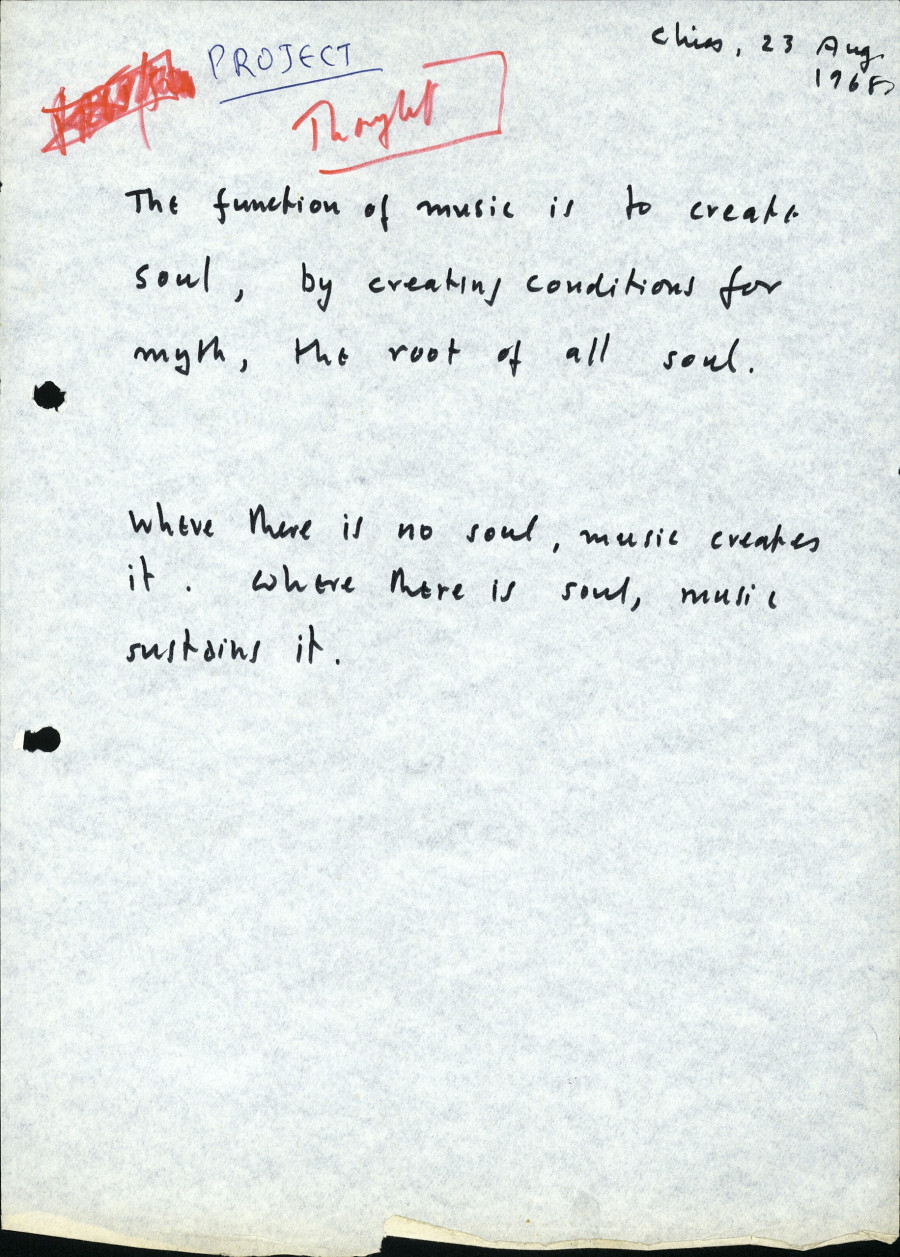 Chios, 23 Aug
1968
PROJECT
Thought
The function of music is to create
soul, by creating conditions for
myth, the root of all soul.
Where there is no soul, music creates
it. Where there is soul, music
sustains it.